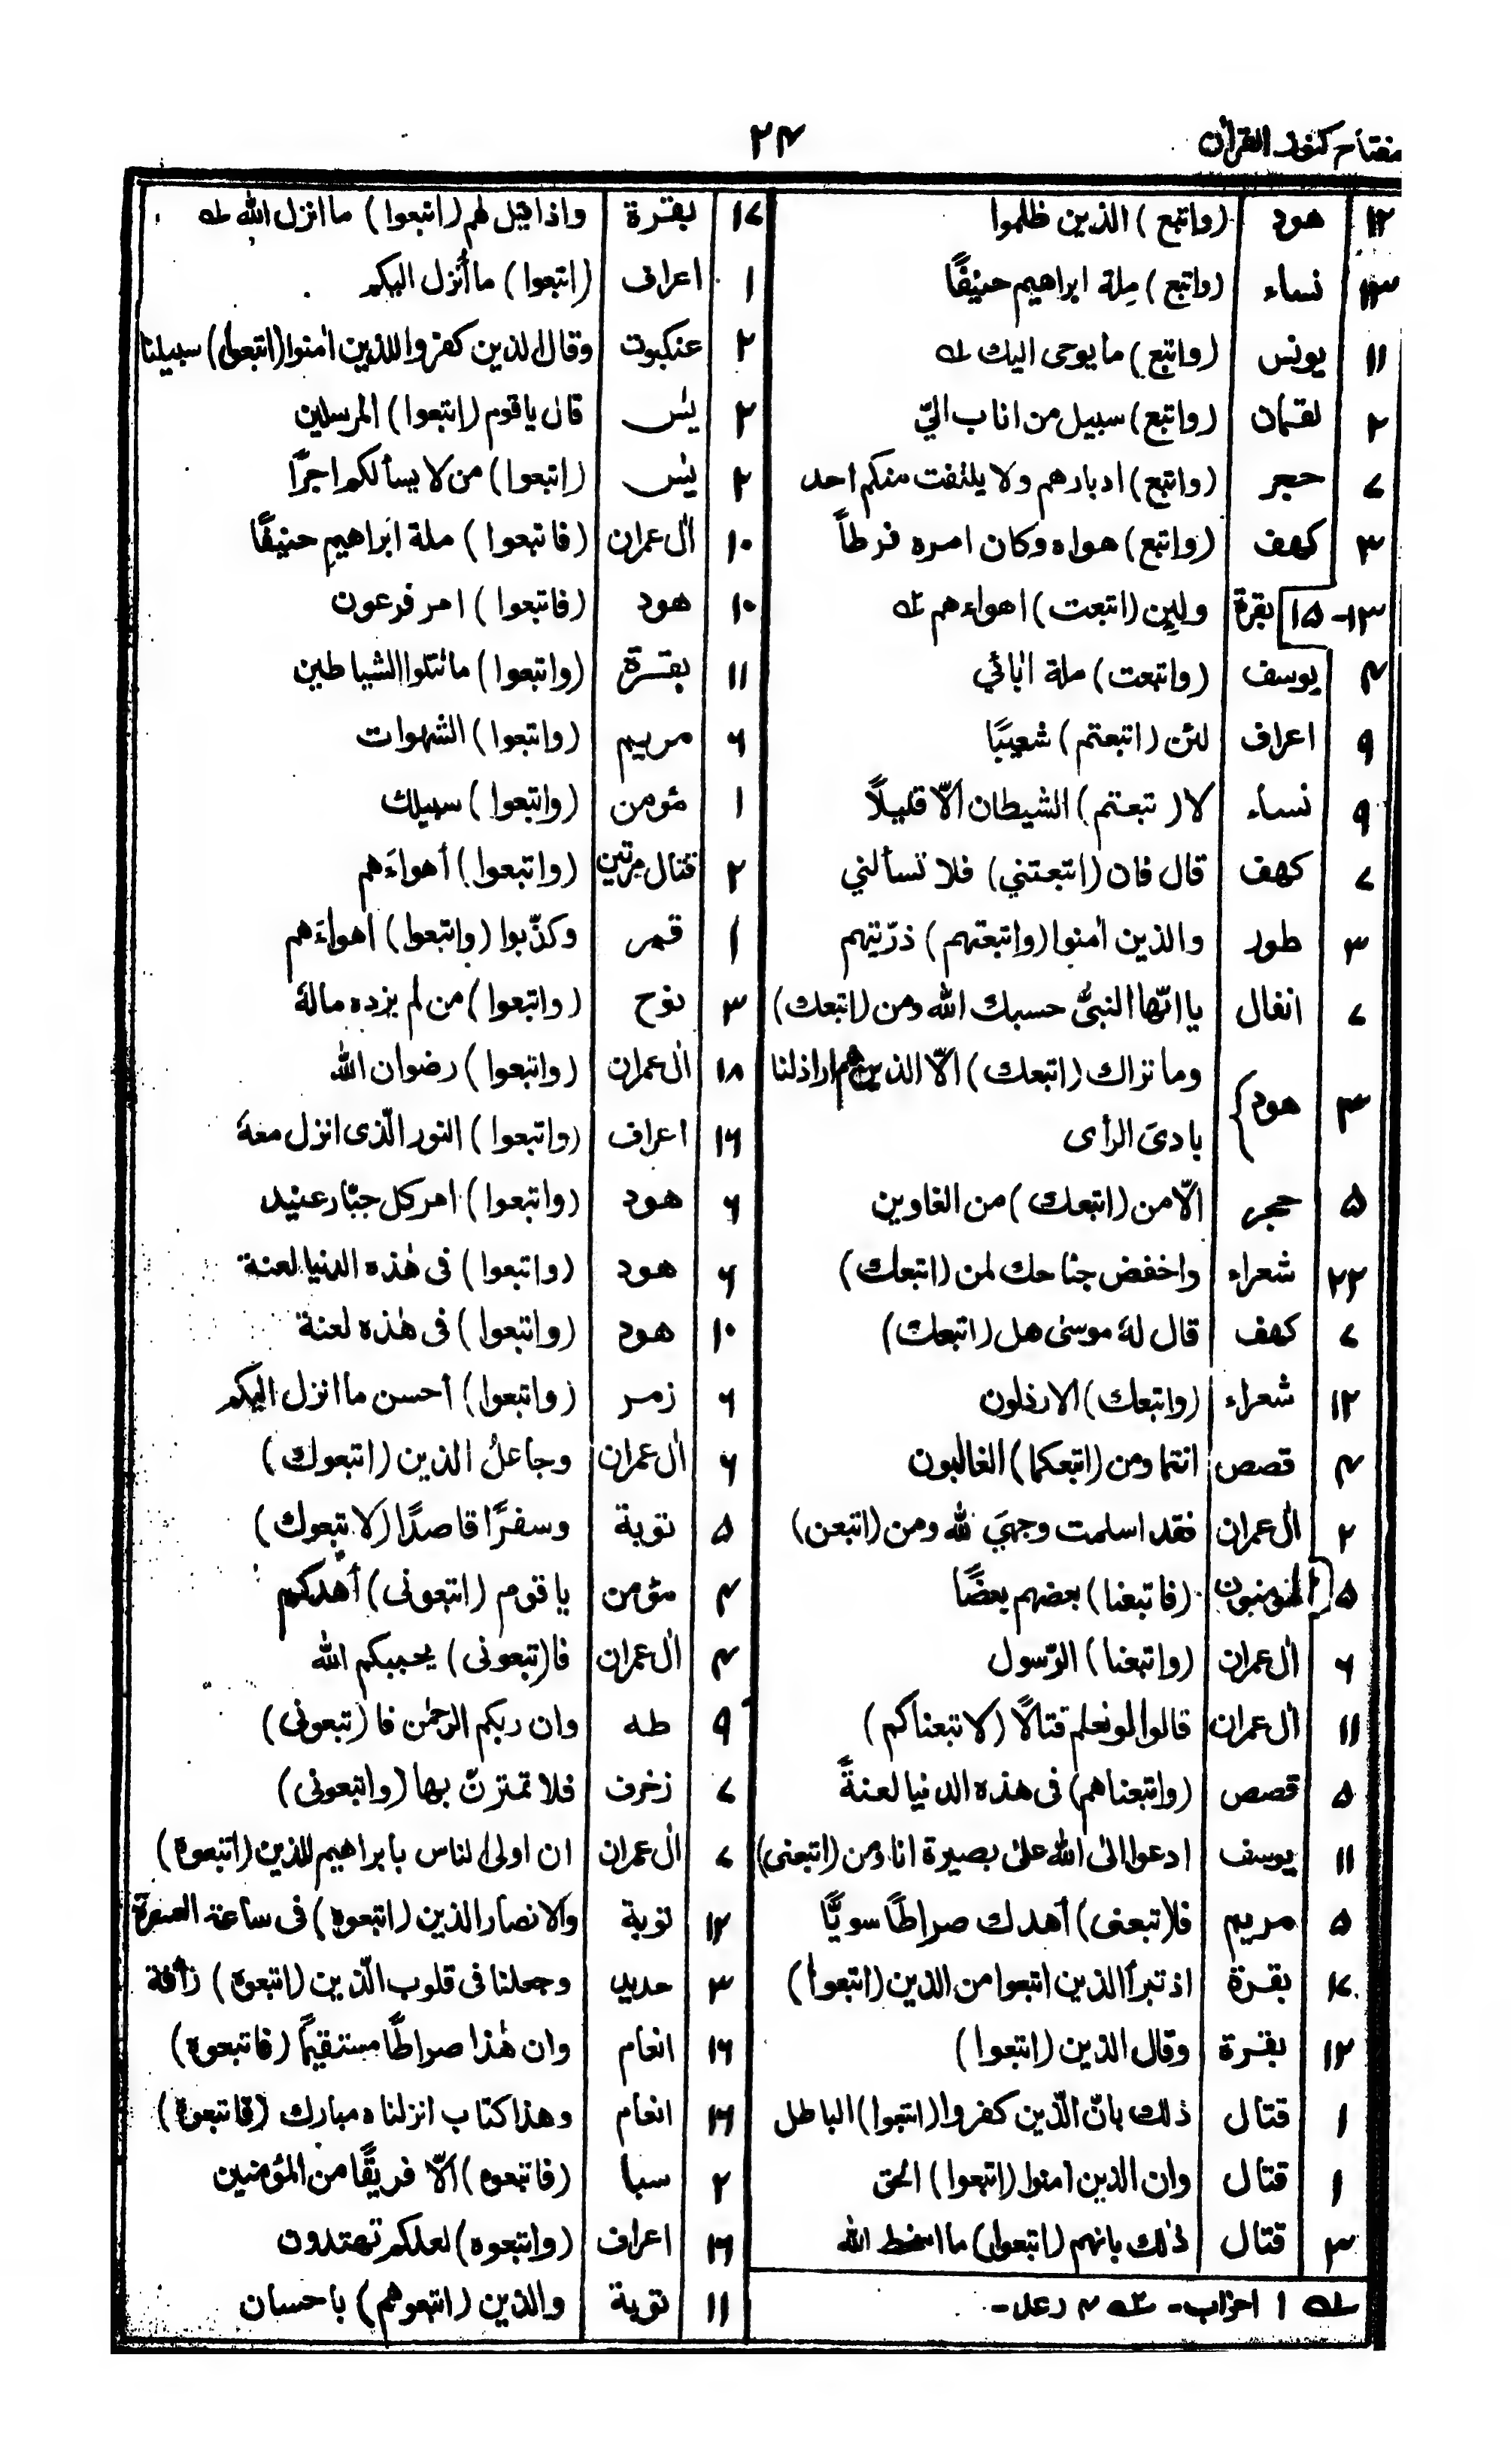 مفتاح كنوز القرآن
۲۴
۱۲ هود (واتبع) الذين ظلموا
نساء (واتبع) مِلة ابراهيم حنيفًا
۱۱ يونس (واتبع) ما يوحى اليك له
۲ لقمان (واتبع) سبيل من اناب اليّ
۷ حجر (واتبع) ادبارهم ولا يلتفت منكم احد
۳ كهف (واتبع) هواه وكان امره فرطاً
۱۳-۱۵ بقرة ولين (اتبعت) اهواءهم
۴ يوسف (واتبعت) ملة اٰبائي
۹ اعراف لئن (اتبعتم) شعيبًا
۹ نساء لا (تبعتم) الشيطان الّا قليلًا
۷ كهف قال فان (اتبعتني) فلا تسألني
۳ طور والذين اٰمنوا (واتبعتهم) ذرّيتهم
۷ انفال يا ايّها النبىُّ حسبك الله ومن (اتبعك)
۳ هود وما نراك (اتبعك) الّا الذين هم اراذلنا
بادىَ الرأى
۵ حجر الّا من (اتبعك) من الغاوين
۲۲ شعراء واخفض جناحك لمن (اتبعك)
۷ كهف قال لهٗ موسىٰ هل (اتبعك)
۱۲ شعراء (واتبعك) الارذلون
۴ قصص انتما ومن (اتبعكما) الغالبون
۲ اٰل عمران فقد اسلمت وجهىَ لله ومن (اتبعن)
المؤمنون (فاتبعنا) بعضهم بعضًا
۶ اٰل عمران (واتبعنا) الرّسول
۱۱ اٰل عمران قالوا لو نعلم قتالًا (لا تبعناكم)
۵ قصص (واتبعناهم) فى هذه الدنيا لعنةً
۱۱ يوسف ادعوا الى الله علىٰ بصيرة انا ومن (اتبعنى)
۵ مريم فا(تبعنى) أهدك صراطًا سويًّا
۱۷ بقرة اذ تبرأ الذين اتبعوا من الذين (اتبعوا)
۱۲ بقرة وقال الذين (اتبعوا)
۱ قتال ذلك بانّ الّذين كفروا (اتبعوا) الباطل
۱ قتال وان الذين اٰمنوا (اتبعوا) الحق
۳ قتال ذٰلك بانهم (اتبعوا) ما اسخط الله
۱ احزاب - ۴ رعد -
۱۷ بقرة واذا قيل لهم (اتبعوا) ما انزل الله
۱ اعراف (اتبعوا) ما أُنزل اليكم
۲ عنكبوت وقال الذين كفروا للذين اٰمنوا (اتبعوا) سبيلنا
۲ يٰس قال ياقوم (اتبعوا) المرسلين
۲ يٰس (اتبعوا) من لا يسألكم اجرًا
۱۰ اٰل عمران (فاتبعوا) ملة ابراهيم حنيفًا
۱۰ هود (فاتبعوا) امر فرعون
۱۱ بقرة (واتبعوا) ما تتلوا الشياطين
۶ مريم (واتبعوا) الشهوات
۱ مؤمن (واتبعوا) سبيلك
۲ قتال مرتين (واتبعوا) أهواءَهم
۱ قمر وكذّبوا (واتبعوا) اهواءَهم
۳ نوح (واتبعوا) من لم يزده مالهٗ
۱۸ اٰل عمران (واتبعوا) رضوان الله
۱۶ اعراف (واتبعوا) النور الّذى انزل معهٗ
۶ هود (واتبعوا) امر كل جبّار عنيد
۶ هود (واتبعوا) فى هٰذه الدنيا لعنة
۱۰ هود (واتبعوا) فى هٰذه لعنة
۶ زمر (واتبعوا) أحسن ما انزل اليكم
۶ اٰل عمران وجاعلُ الذين (اتبعوك)
۵ توبة وسفرًا قاصدًا (لا تبعوك)
۴ مؤمن يا قوم (اتبعونى) أهدكم
۴ اٰل عمران فا(تبعونى) يحببكم الله
۹ طه وان ربكم الرحمٰن فا (تبعونى)
۷ زخرف فلا تمترنّ بها (واتبعونى)
۷ اٰل عمران ان اولى الناس بابراهيم للذين (اتبعوه)
۱۲ توبة والانصار الذين (اتبعوه) فى ساعة العسرة
۳ حديد وجعلنا فى قلوب الّذين (اتبعوه) رأفة
۱۶ انعام وان هٰذا صراطًا مستقيمًا (فاتبعوه)
انعام وهذا كتاب انزلناه مبارك (فاتبعوه)
۲ سبا (فاتبعوه) الّا فريقًا من المؤمنين
اعراف (واتبعوه) لعلكم تهتدون
۱۱ توبة والذين (اتبعوهم) باحسان